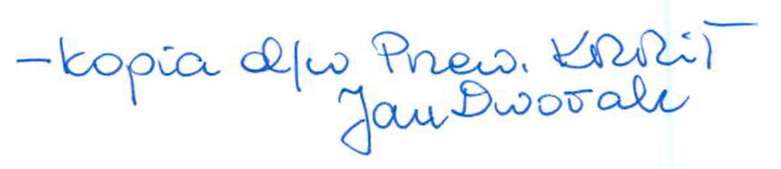 - kopia d/w Przew. KRRiT
Jan Dworak